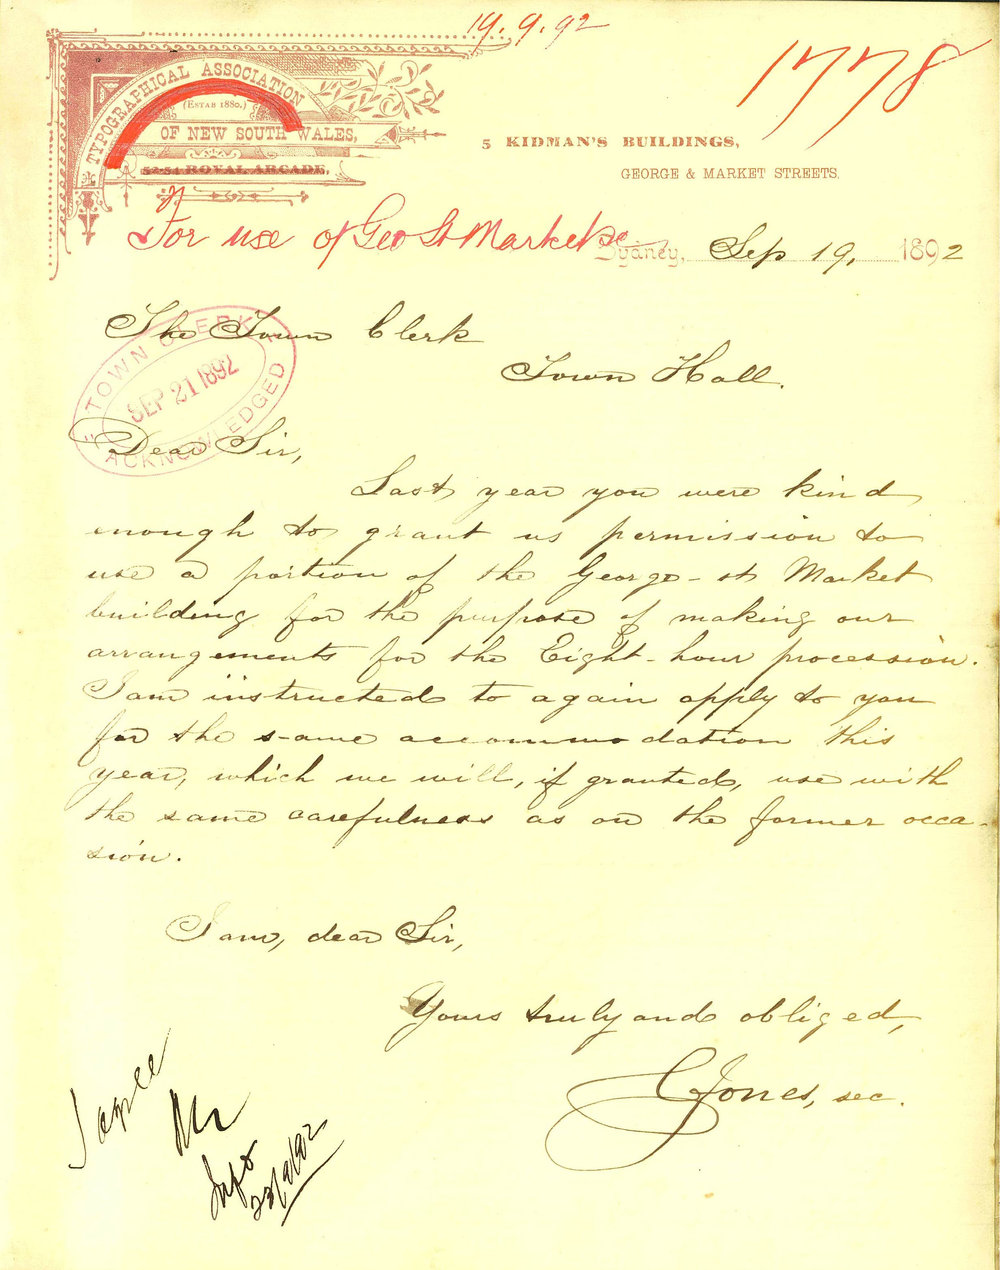 19.9.92
1778
TYPOGRAPHICAL ASSOCIATION
(ESTAB 1880.)
OF NEW SOUTH WALES,
52-54 ROYAL ARCADE,
5 KIDMAN'S BUILDINGS,
GEORGE & MARKET STREETS.
For use of Geo St Market
Sydney, Sep 19, 1892
The Town Clerk
Town Hall.
TOWN CLERK'S
SEP 21 1892
ACKNOWLEDGED
Dear Sir,
Last year you were kind
enough to grant us permission to
use a portion of the George-st Market
building for the purpose of making our
arrangements for the Eight-hour procession.
I am instructed to again apply to you
for the same accommodation this
year, which we will, if granted, use with
the same carefulness as on the former occa-
sion.
I am, dear Sir,
Yours truly and obliged,
C Jones, sec.
I agree
23/9/92